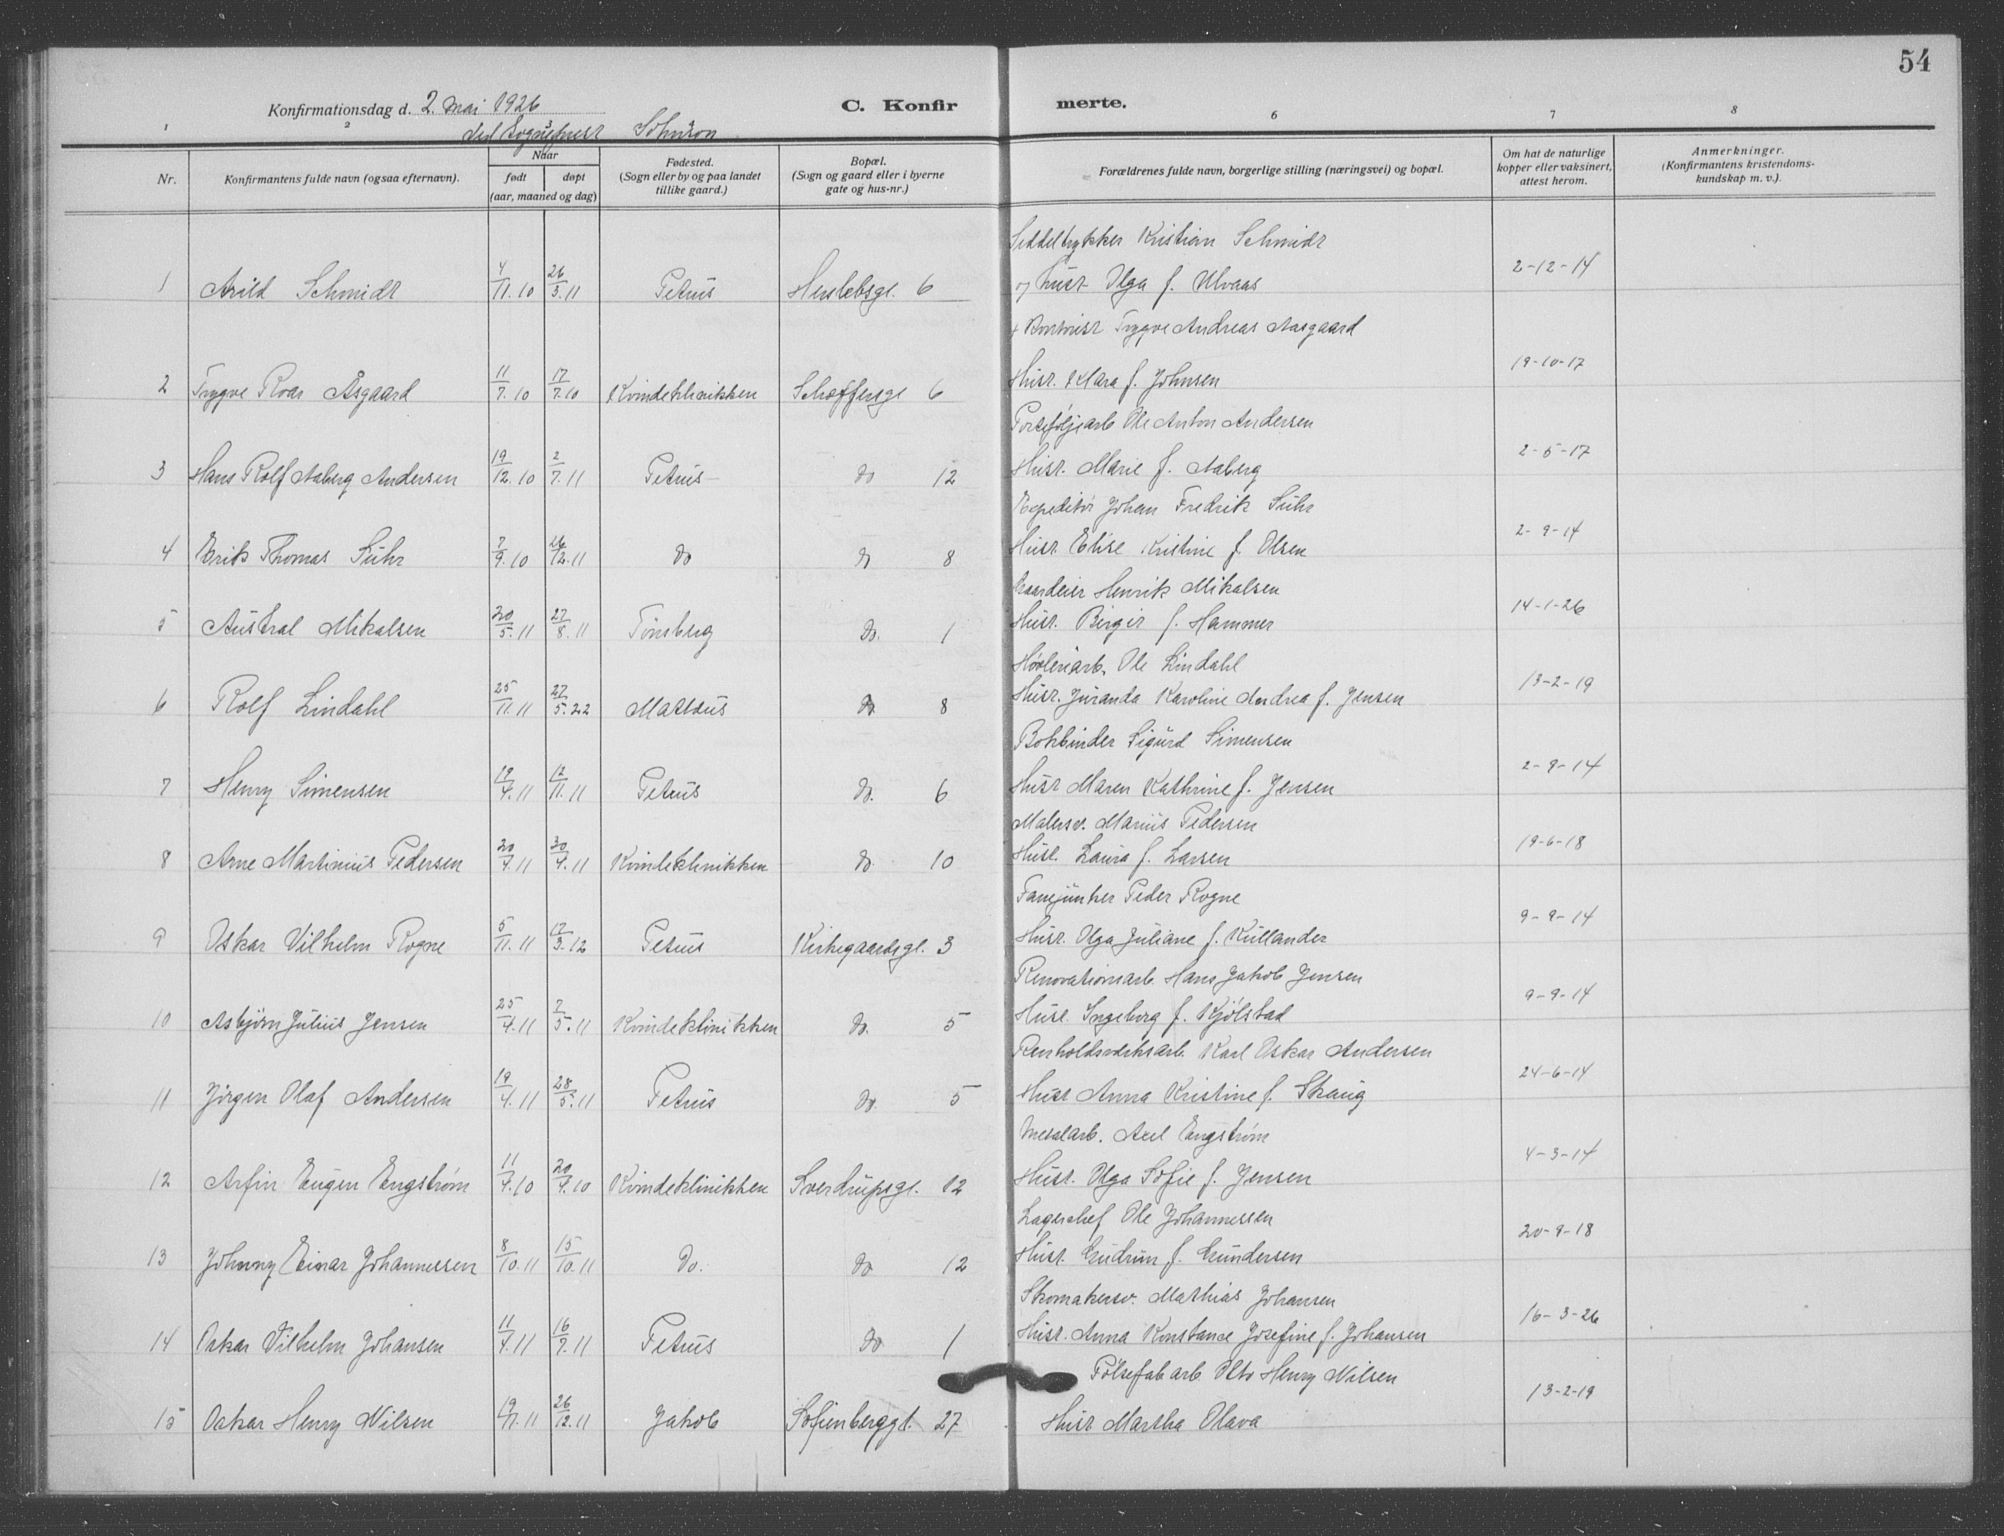 54
Konfirmationsdag d. 2. Mai 1926 C. Konfirmerte.
ved Sogneprest Johnson
1 2 3 6 7 8
Nr. Konfirmantens fulde navn (ogsaa efternavn). Naar født døpt (aar, maaned og dag) Fødested. (Sogn eller by og paa landet tillike gaard.) Bopæl. (Sogn og gaard eller i byerne gate og hus-nr.) Forældrenes fulde navn, borgerlige stilling (næringsvei) og bopæl. Om hat de naturlige kopper eller vaksinert, attest herom. Anmerkninger. (Konfirmantens kristendoms-kundskap m. v.).
Kristian Schmidt
1 Arild Schmidt 4/11.10 26/3.11 Petrus Herslebsgt. 6 og Hust. Olga f. Ulvaas 2-12-14
Trygve Andreas Aasgaard
2 Trygve Roar Åsgaard 11/7.10 17/7.10 Kvindeklinikken Schæffersgt 6 Hust. Klara f. Johnsen 19-10-17
Porteføljearb Ole Anton Andersen
3 Hans Rolf Aaberg Andersen 19/12.10 2/7.11 Petrus do 12 Hust. Marie f. Aaberg 2-5-17
Expeditør Johan Fredrik Suhr
4 Erik Thomas Suhr 7/9.10 26/12.11 do do 8 Hust Elise Kristine f. Olsen 2-9-14
Gaardeier Henrik Mikalsen
5 Austral Mikalsen 20/5.11 27/8.11 Tønsberg do. 1 Hust. Birgit f. Hammer 14-1-26
Høvleriarb. Ole Lindahl
6 Rolf Lindahl 25/11.11 27/5.22 Matæus do 8 Hust. Juranda Karoline Andrea f. Jensen 13-2-19
Bokbinder Sigurd Simensen
7 Henry Simensen 19/4.11 12/11.11 Petrus do. 6 Hust Maren Kathrine f. Jensen 2-9-14
Malersv. Marius Pedersen
8 Arne Martinius Pedersen 20/4.11 30/4.11 Kvindeklinikken do. 10 Hust. Laura f. Larsen 19-6-18
Fanejunker Peder Rogne
9 Oskar Vilhelm Rogne 5/11.11 17/3.12 Petrus Kirkegaardsgt. 3 Hust. Olga Juliane f. Kullander 9-9-14
Renovationsarb. Hans Jakob Jensen
10 Asbjørn Julius Jensen 25/4.11 7/5.11 Kvindeklinikken do. 5 Hust. Ingeborg f. Kjølstad 9-9-14
Renholdsverksarb. Karl Oskar Andersen
11 Jørgen Olaf Andersen 19/4.11 28/5.11 Petrus do. 5 Hust Anna Kristine f. Skaug 24-6-14
Metalarb. Axel Engstrøm
12 Arfin Eugen Engstrøm 11/4.10 20/4.10 Kvindeklinikken Sverdrupsgt. 12 Hust. Olga Sofie f. Jensen 4-3-14
Lagerchef Ole Johannessen
13 Johnny Einar Johannessen 8/10.11 15/10.11 do. do 12 Hust. Gudrun f. Gundersen 20-9-18
Skomakersv. Mathias Johansen
14 Oskar Vilhelm Johansen 11/4.11 16/7.11 Petrus do 1 Hust. Anna Konstance Josefine f. Johansen 16-3-26
Pølsefab arb Otto Henry Nilsen
15 Oskar Henry Nilsen 19/11.11 26/12.11 Jakob Sofienberggt. 27 Hust Martha Olava 13-2-19